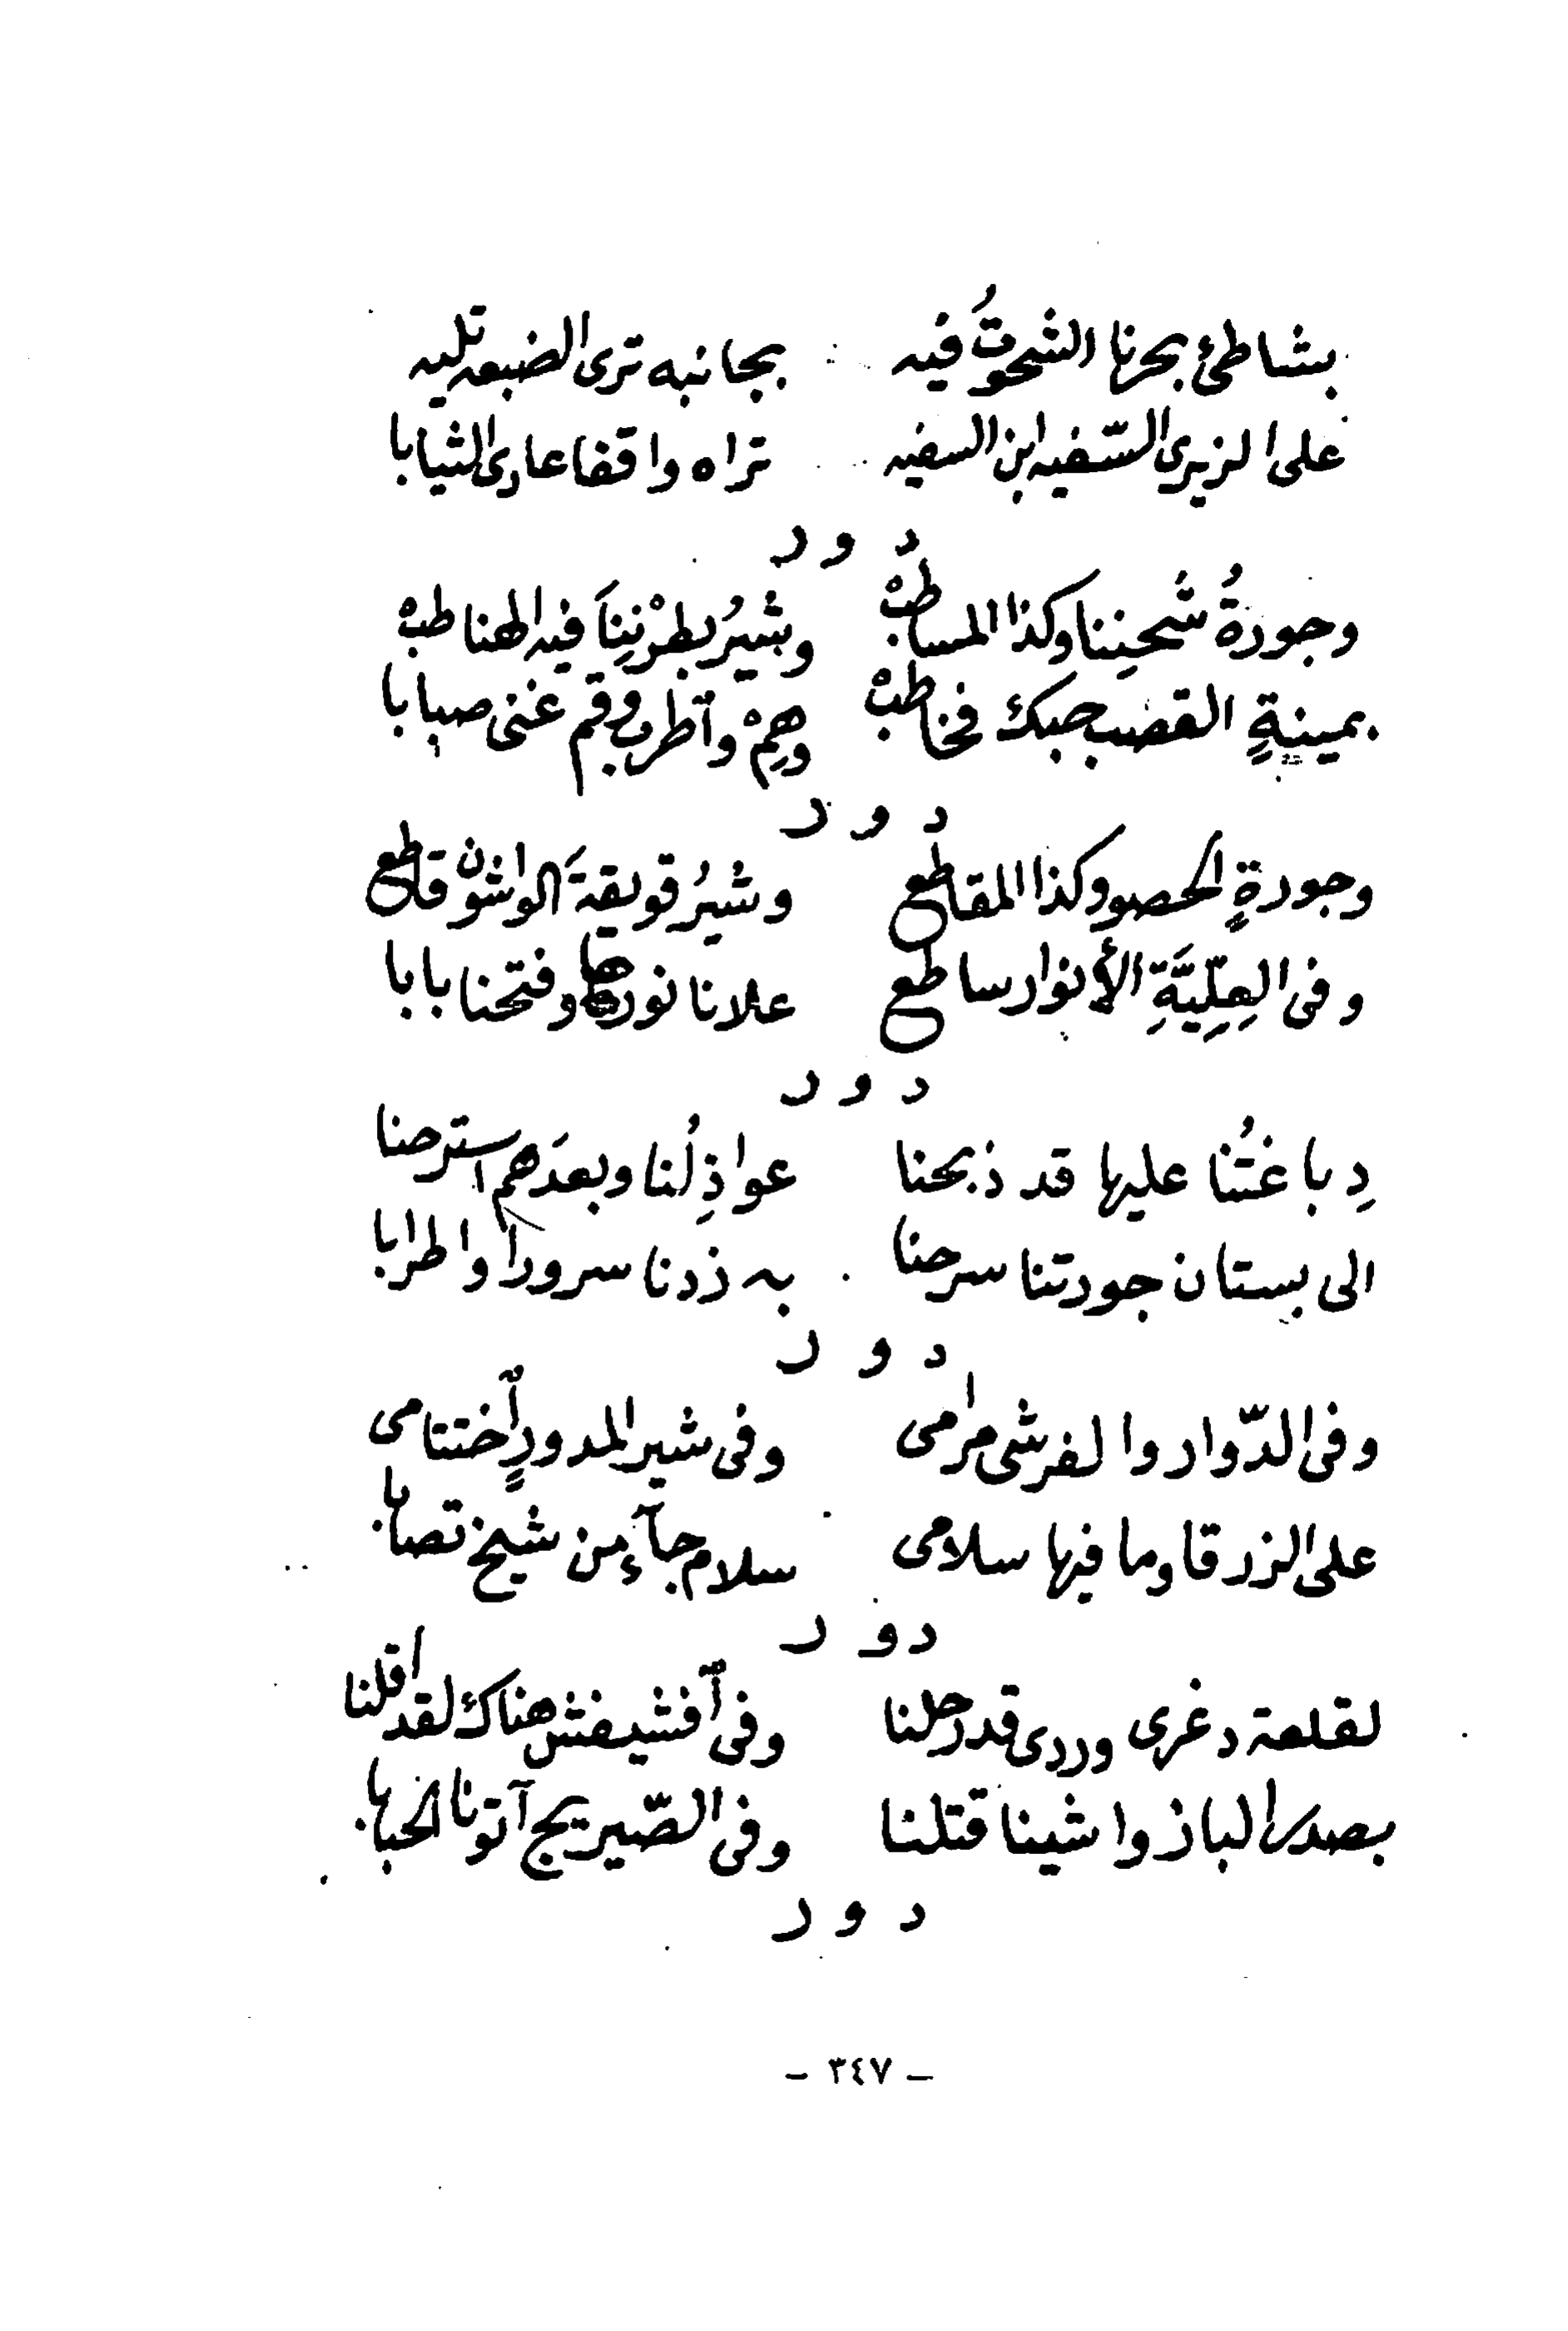 بشاطئ بحرنا الشحوتُ فيه بجانبه ترى الضبعه تليه
على الزيرى السّفيه ابن السفيه تراه واقفا عارى الثيابا
دور
وجودةُ شَحيننا وكذا المساطبْ وبشيرُ بطرْنينَا فيه الهنا طبْ
بمينةِ القصب حبك فخاطبْ وهِمْ واطرب وقم غنى صبابا
دور
وجودةِ الحصو وكذا المقاطع وشيرُ قويقةَ الواشون قاطع
وفى العِلِّيَّةِ الأنوار ساطع علانا نورها وفتحنا بابا
دور
دِباغتُنا عليها قد ذبحنا عواذِلُنا وبعدَهم استرحنا
الى بستان جودتنا سرحنا به زدنا سروراً واطرابا
دور
وفى الدّوار والفرشى مرامى وفى شير المدورِ اختتامى
على الزرقا وما فيها سلامى سلام جآء من شيخ تصابا
دور
لقلعة دغرى وردى قد رحلنا وفى أفشيفش هناك لقد اقلنا
بصدر الباز واشينا قتلنا وفى الصّيريج آتونا الخبابا
دور
– ٣٤٧ –